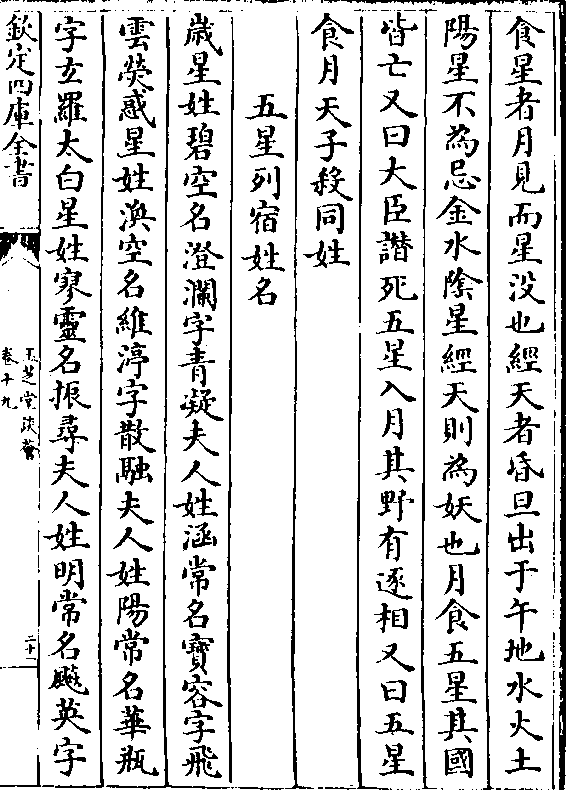 食星者月見而星没也經天者昏旦出于午地水火土
陽星不為忌金水陰星經天則為妖也月食五星其國
皆亡又曰大臣譖死五星入月其野有逐相又曰五星
食月天子殺同姓
五星列宿姓名
歳星姓碧空名澄瀾字青凝夫人姓涵常名寶容字飛
雲熒惑星姓渙空名維渟字散融夫人姓陽常名華瓶
字玄羅太白星姓寥靈名振尋夫人姓明常名飚英字
欽定四庫全書
玉芝堂談薈
卷十九
二十一